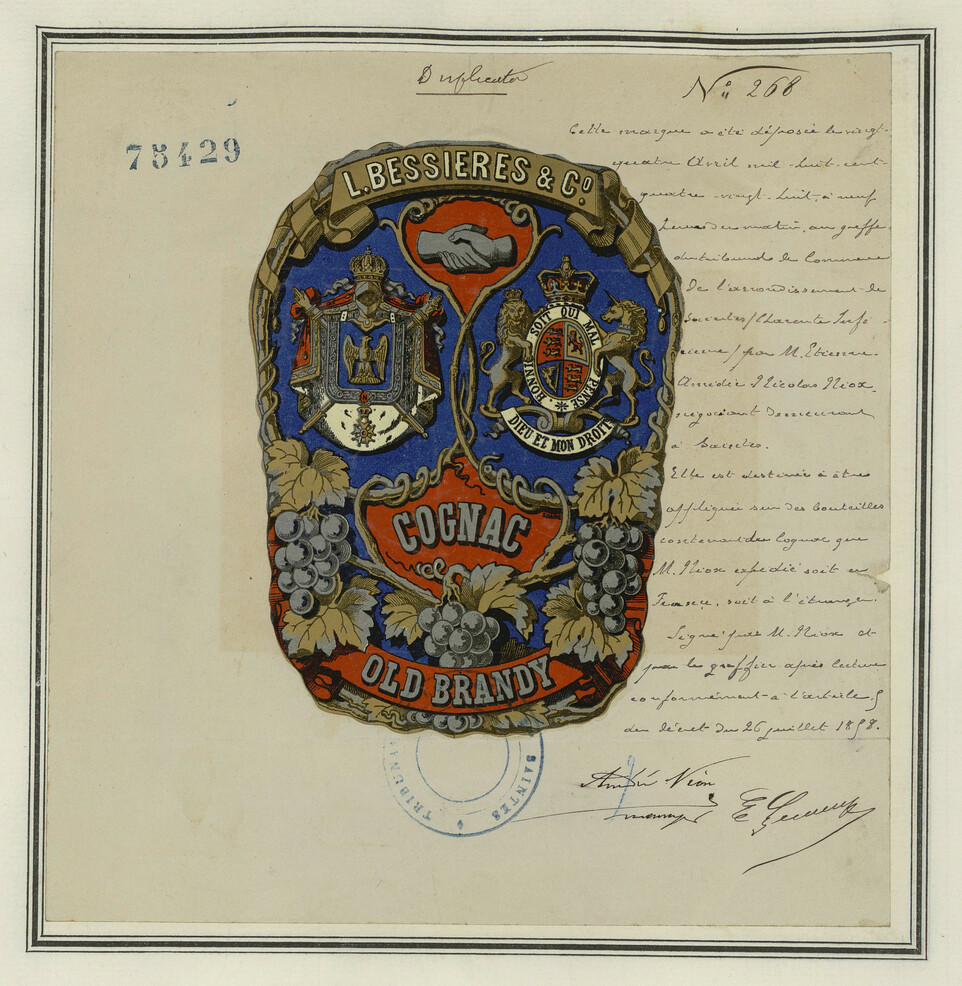 Duplicata
N° 268
75429
L. BESSIERES & Co
HONNI SOIT QUI MAL Y PENSE
DIEU ET MON DROIT
COGNAC
OLD BRANDY
TRIBUN SAINTES
Cette marque a été déposée le vingt-
quatre Avril mil-huit-cent-
quatre-vingt-huit, à neuf
heures du matin, au greffe
du tribunal de Commerce
de l'arrondissement de
Saintes (Charente Infé-
rieure) par M. Etienne
Amédée Nicolas Niox
négociant demeurant
à Saintes.
Elle est destinée à être
appliquée sur des bouteilles
contenant du Cognac que
M. Niox expédie soit en
France, soit à l'étranger.
Signé par M. Niox et
par le greffier après lecture
conformément à l'article 5
du décret du 26 juillet 1858.